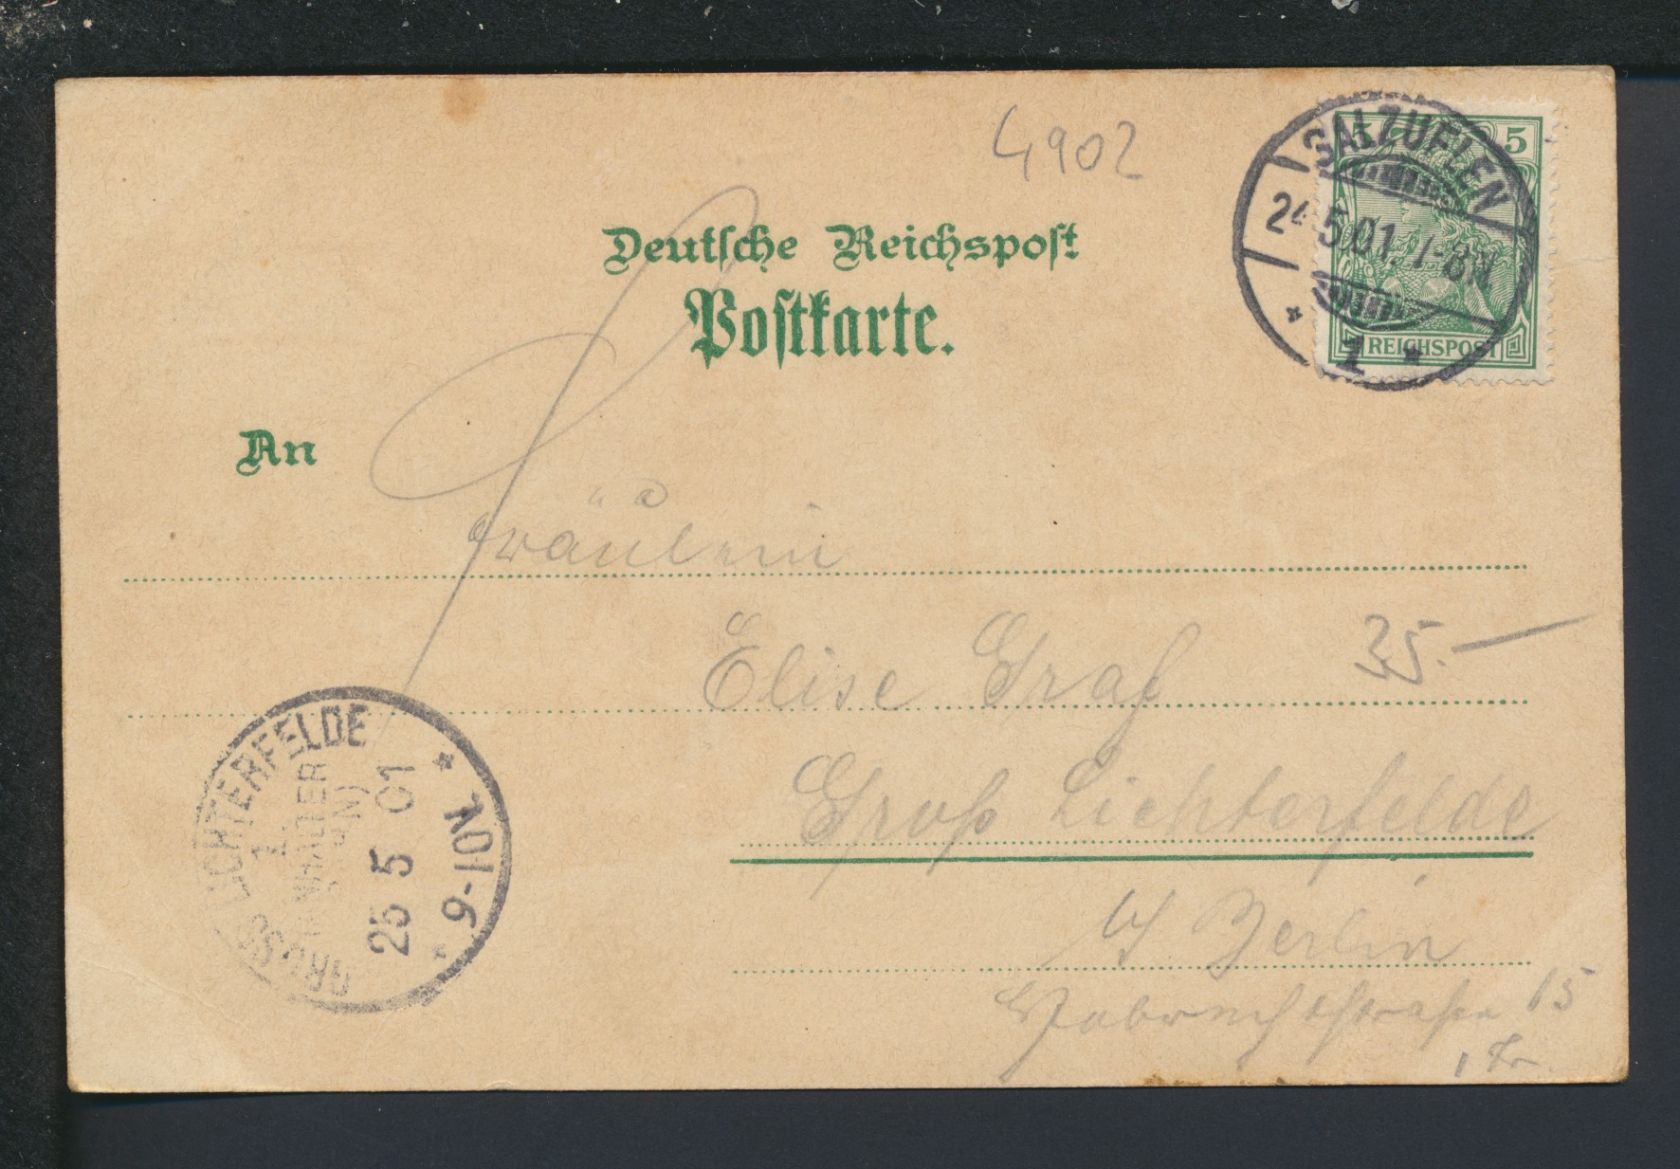 4902
Deutsche Reichspost
Postkarte.
SALZUFLEN
24.5.01. 7-8N
* 1 *
5 5
REICHSPOST
An
Fräulein
Elise Graf
35.-
Groß Lichterfelde
b/ Berlin
15
1 Tr.
GROSS LICHTERFELDE
1
25 5 01
9-10V.